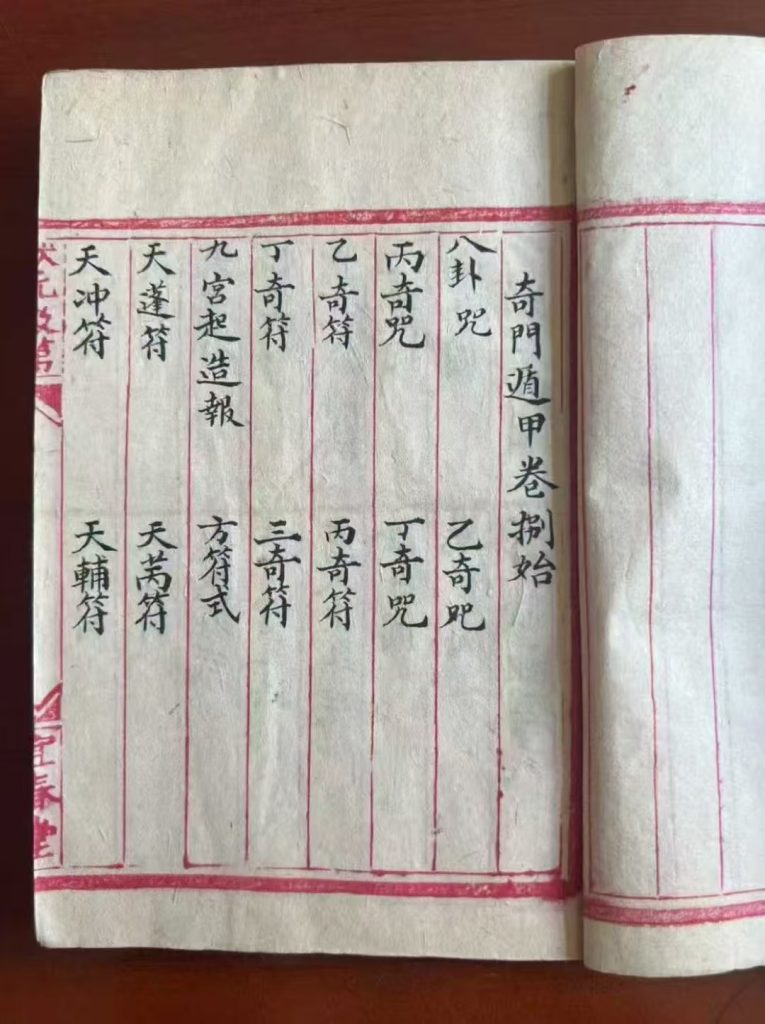 奇門遁甲卷捌始
八卦咒 乙奇咒
丙奇咒 丁奇咒
乙奇符 丙奇符
丁奇符 三奇符
九宮起造報 方符式
天蓬符 天芮符
天冲符 天輔符
狀元及第
宜春堂